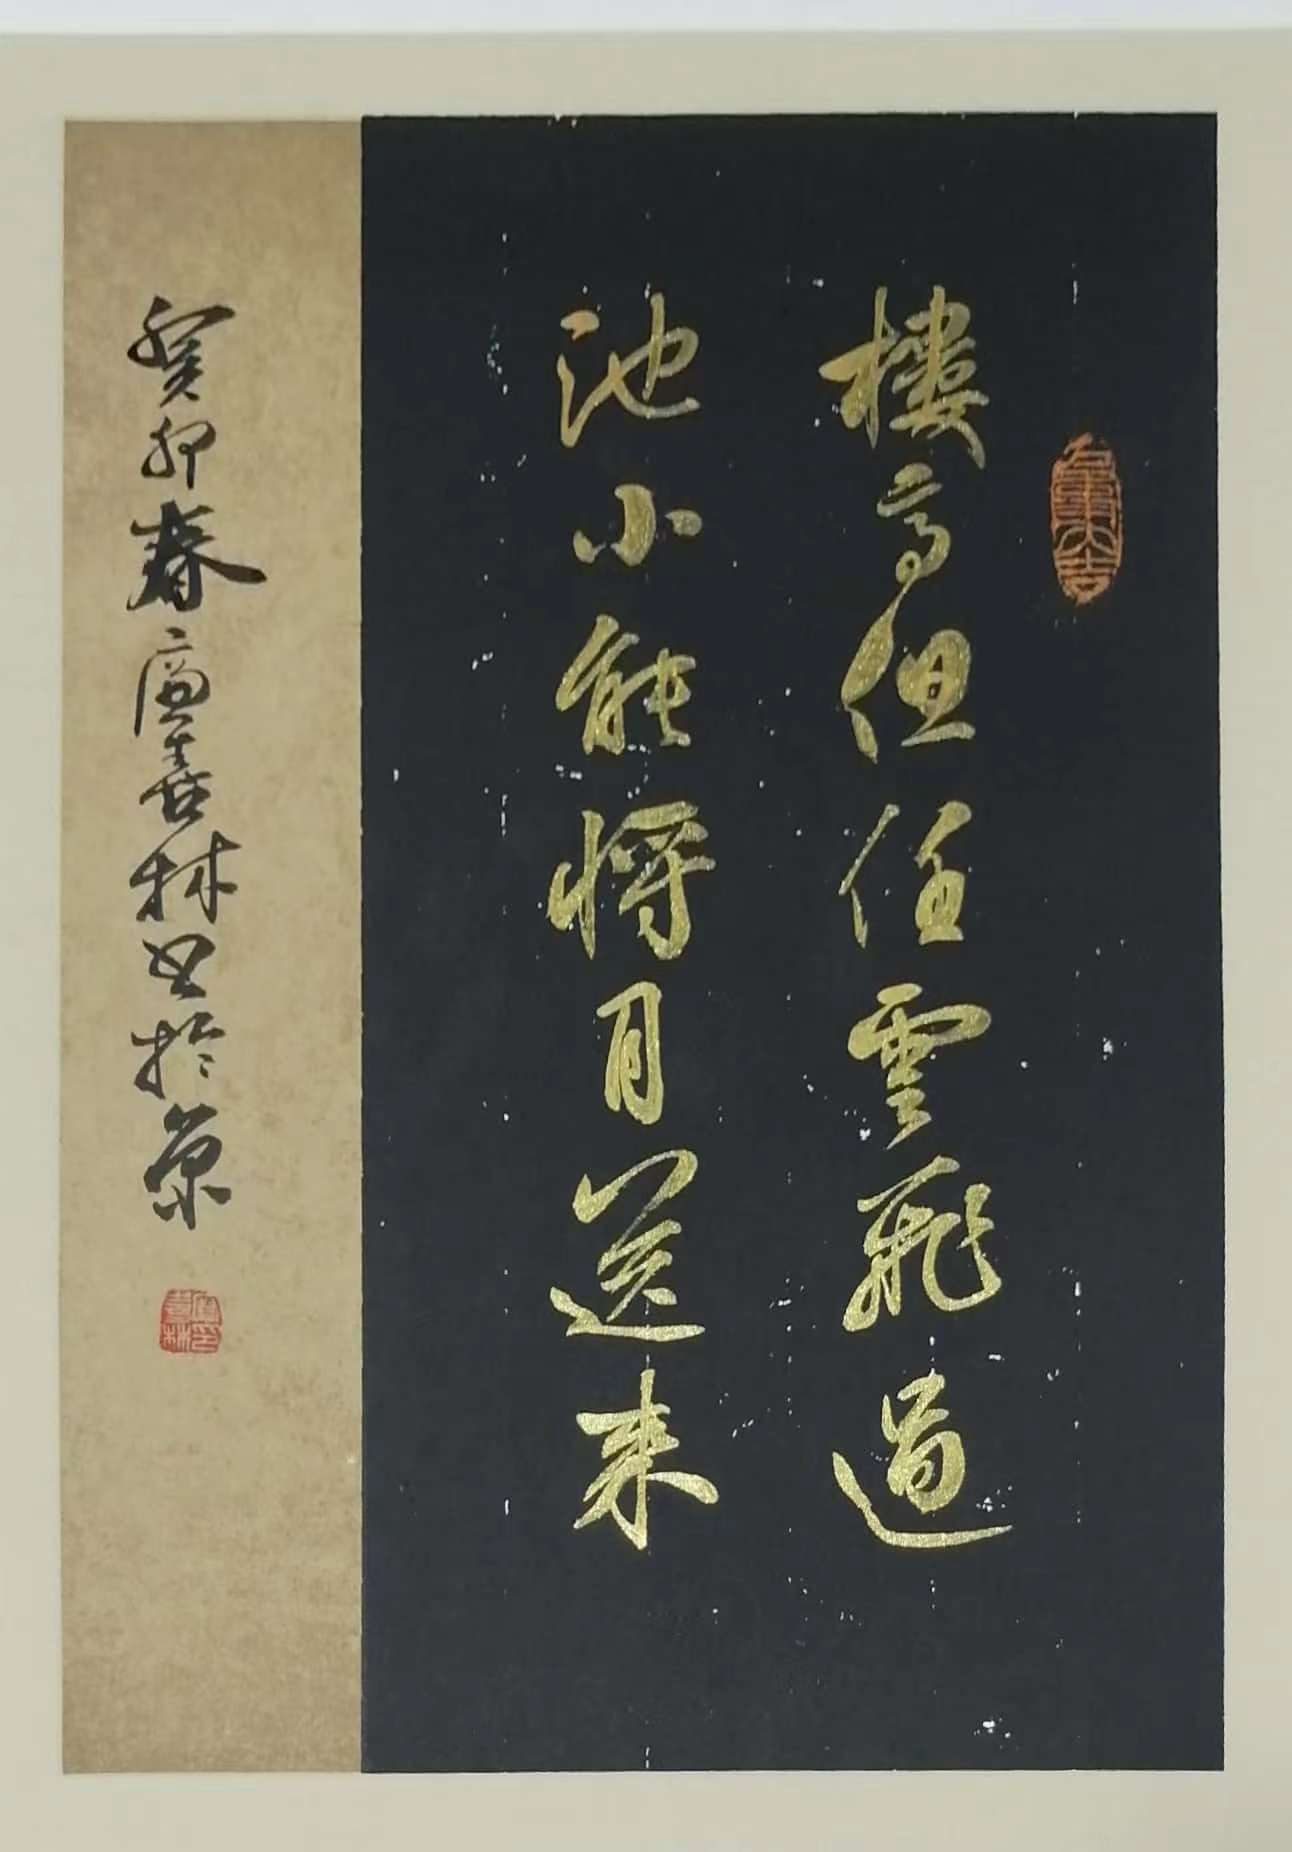 樓高但任雲飛過
池小能將月送來
癸卯春廣喜林書於京